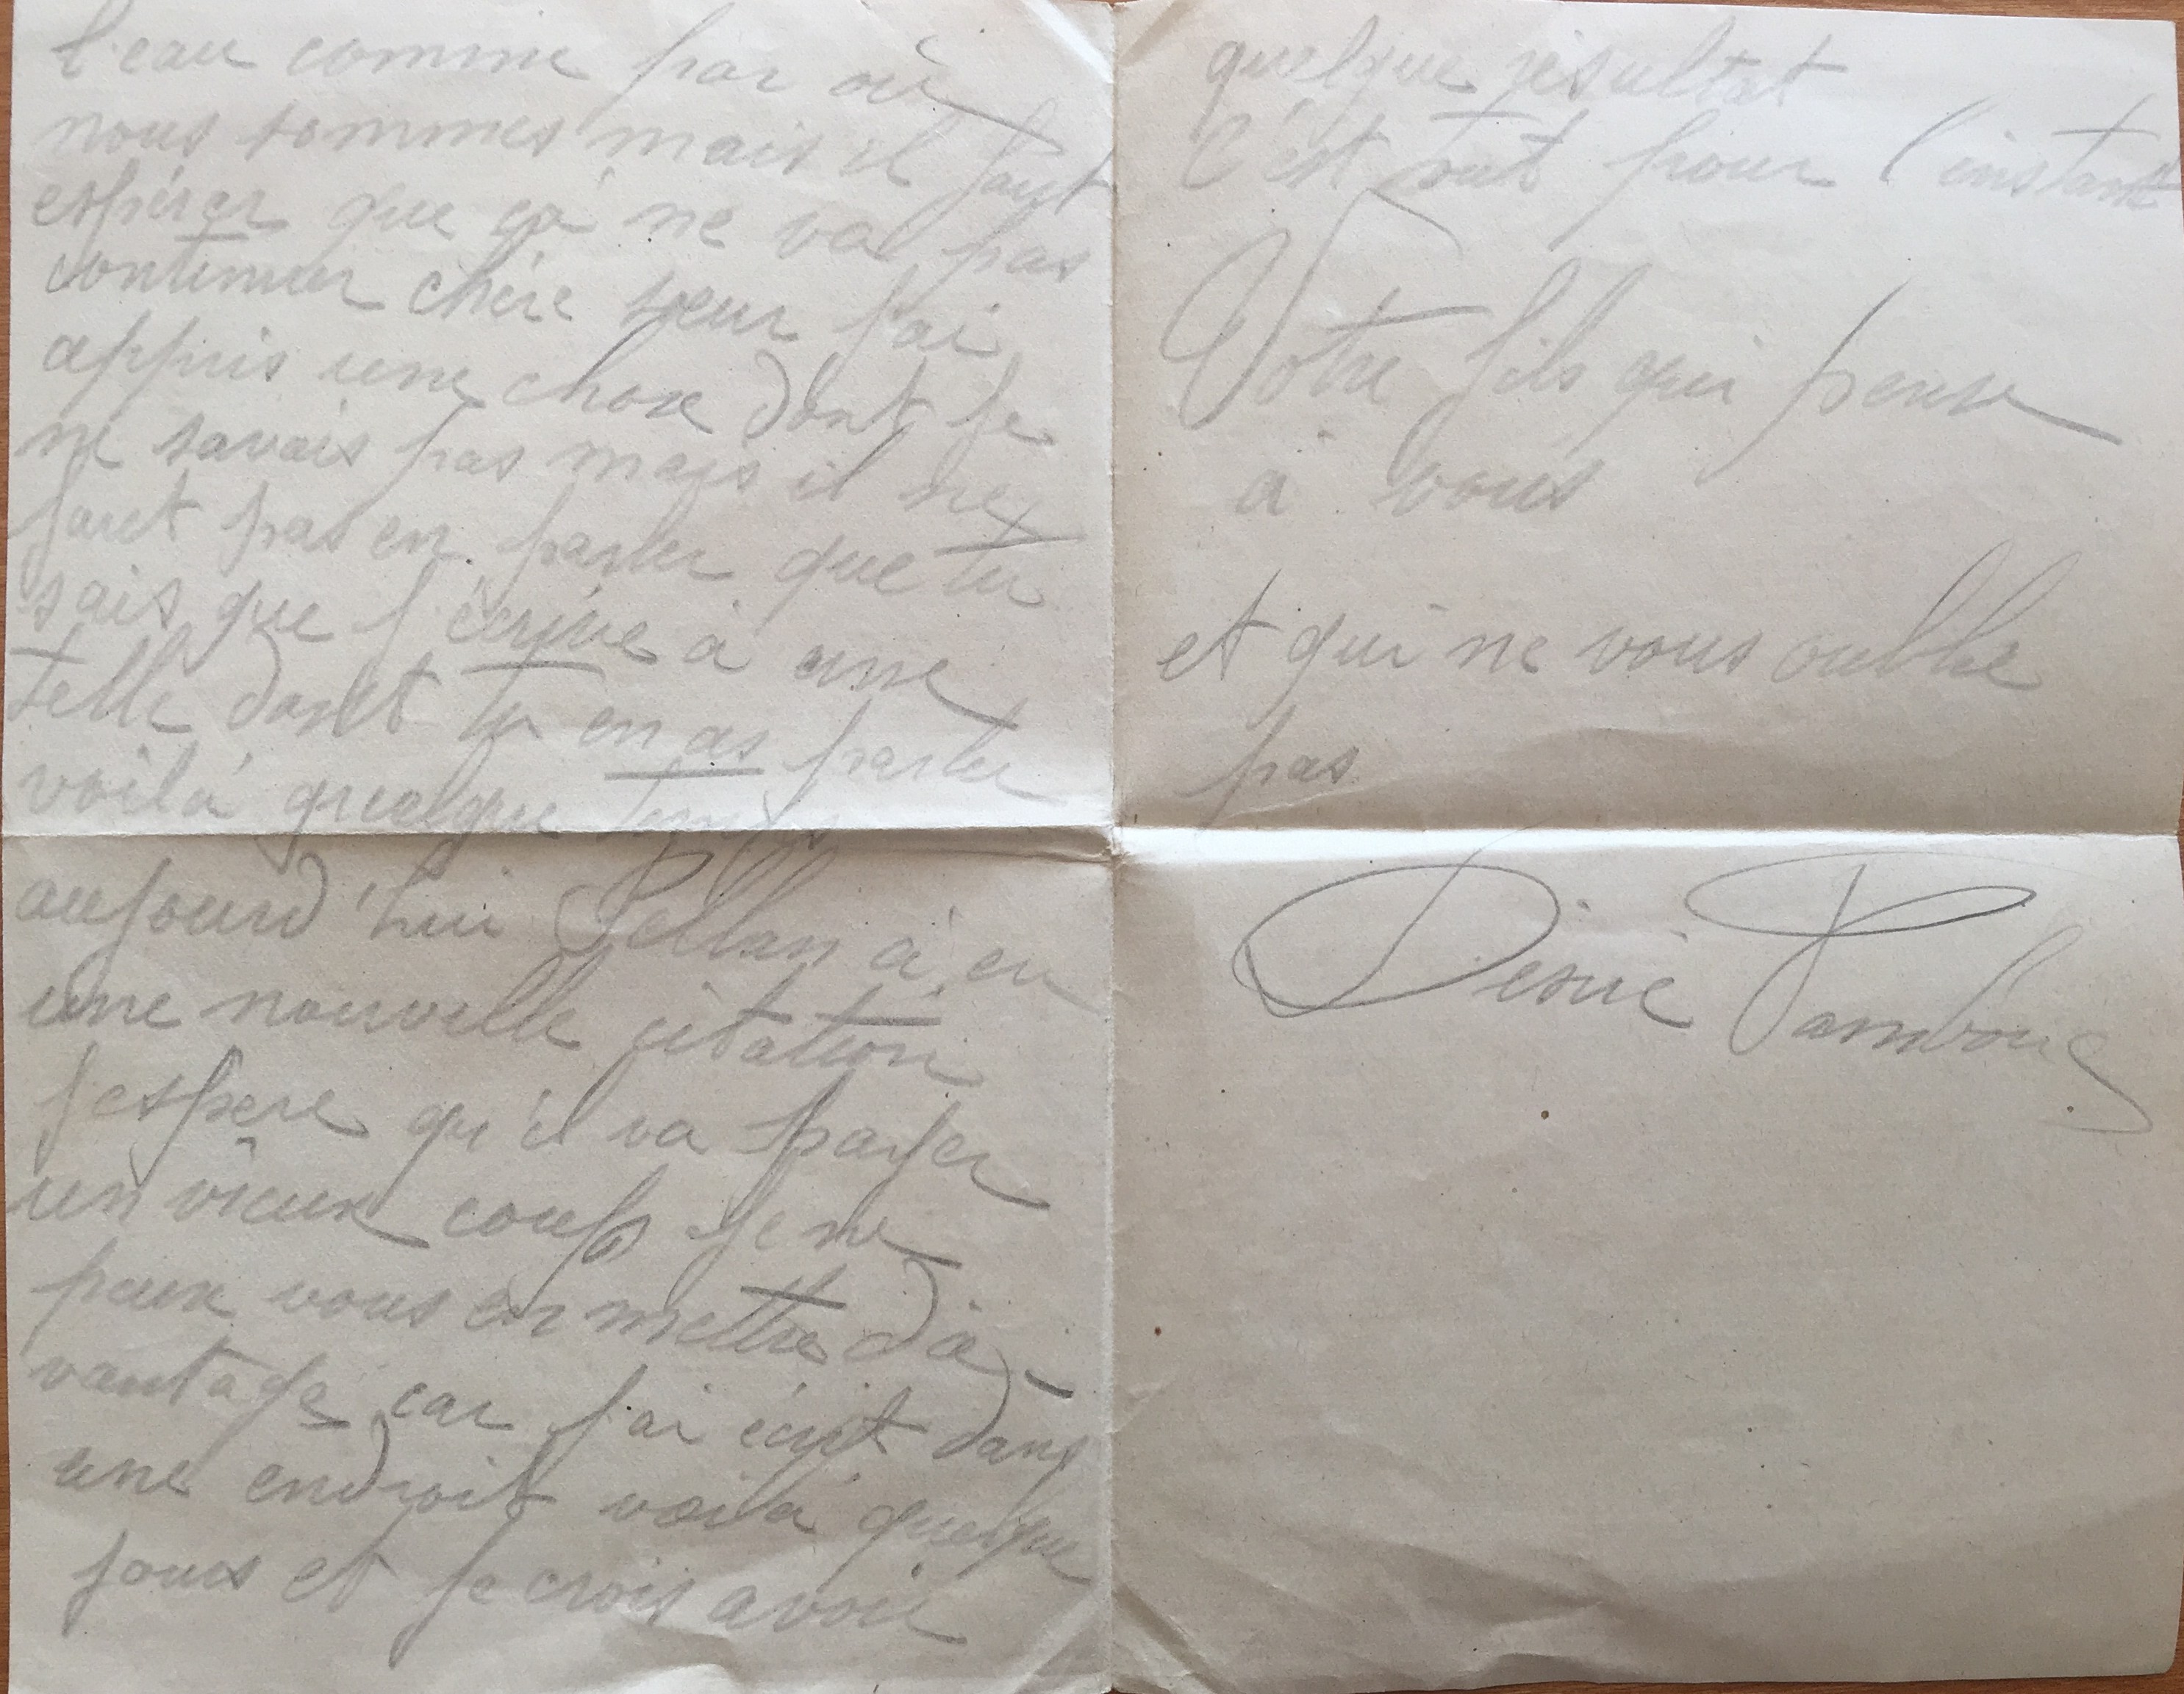 l'eau comme par où
nous sommes mais il faut
espérer que ça ne va pas
continuer chère sœur j'ai
appris une chose dont je
ne savais pas mais il ne
faut pas en parler que tu
sais que j'écrive à une
telle dont tu en as parler
voilà quelque temps
aujourd'hui Pellan à eu
une nouvelle citation
j'espère qu'il va payer
un vieux coup je ne
peux vous en mettre da-
vantage car j'ai écrit dans
une endroit voilà quelque
jours et je crois avoir
quelque résultat
C'est tout pour l'instant
Votre fils qui pense
à vous
et qui ne vous oublie
pas
Désiré